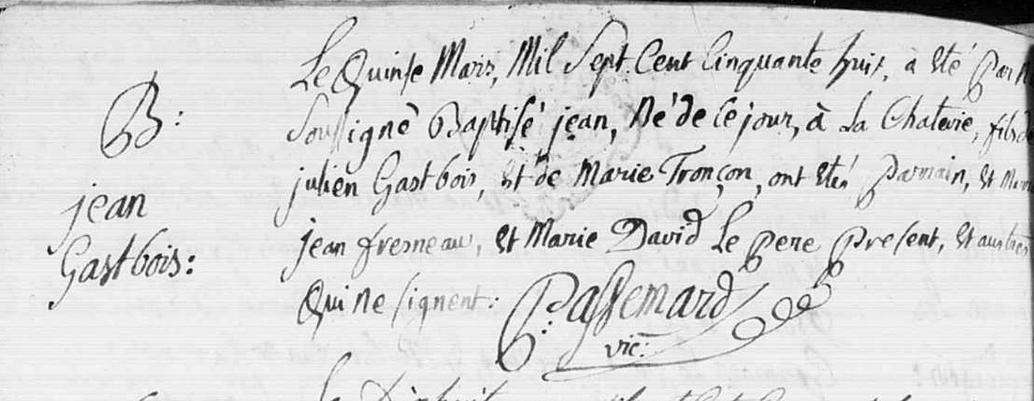 B:
jean
Gastbois:
Le Quinse Mars, Mil Sept Cent Cinquante huit, a été par
Soussigné Baptisé jean, Né de ce jour, à la Chatevie, fils
julien Gastbois, et de Marie Tronçon, ont étés Parmain, et
jean fresneau, et Marie David Le pere present, et
Qui ne signent: Passemard
vic: